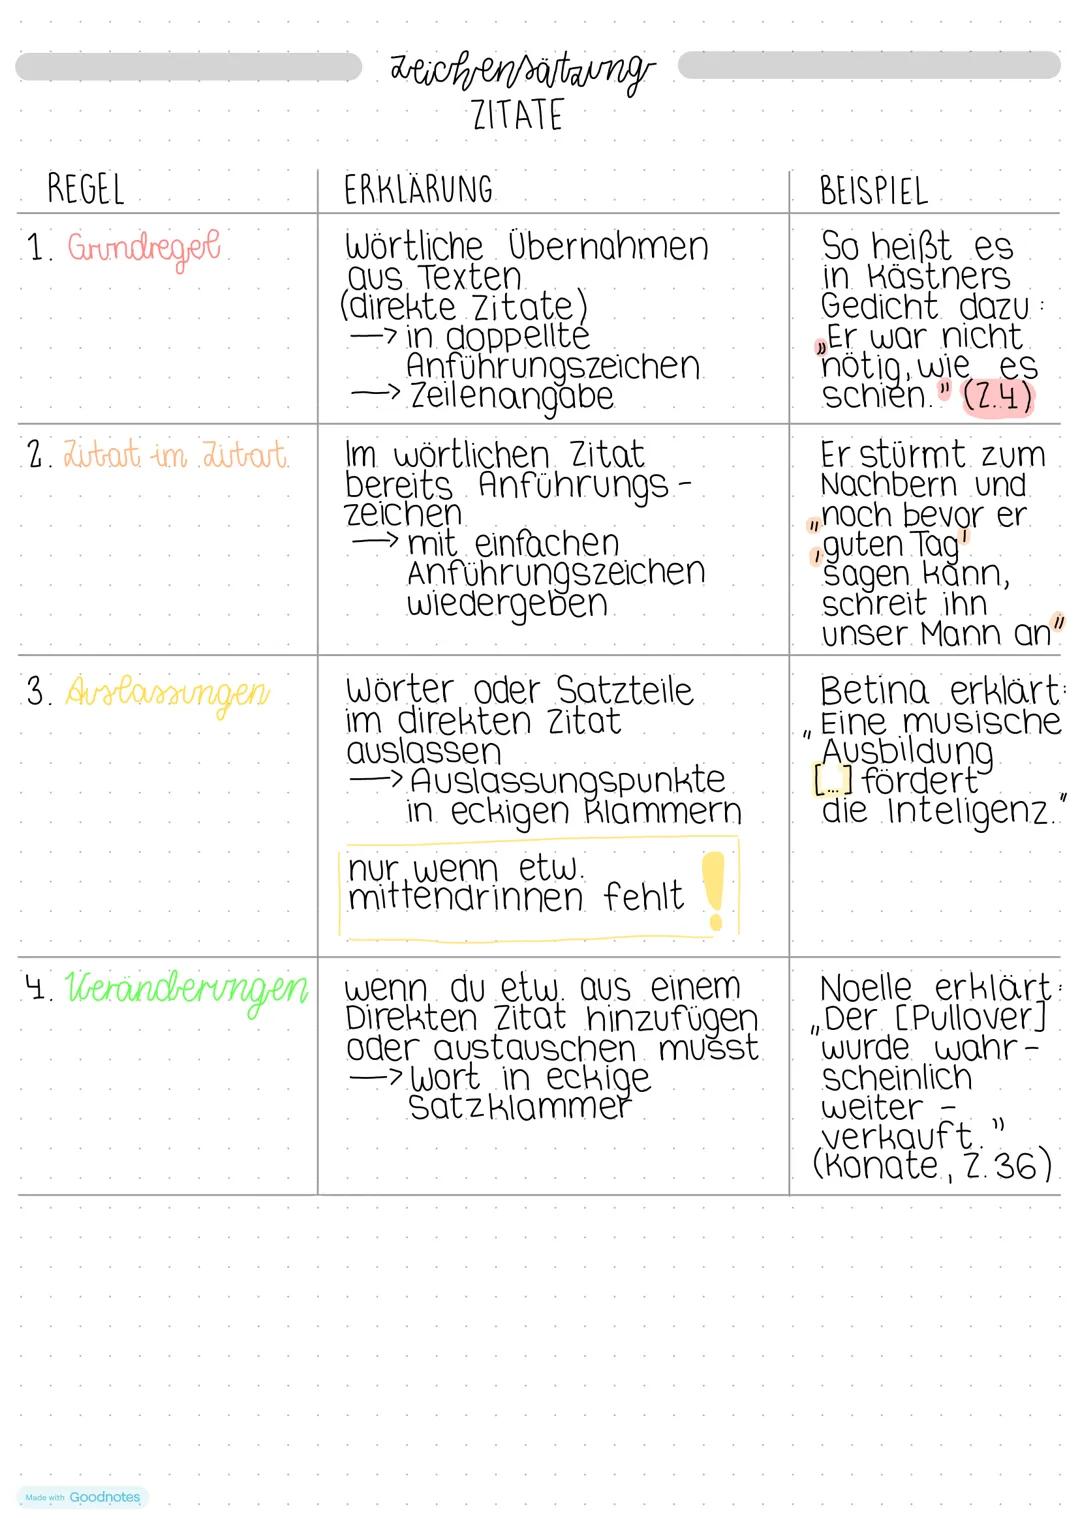 Zeichensätzung
ZITATE
REGEL
ERKLÄRUNG
BEISPIEL
1. Grundregel
Wörtliche Übernahmen
aus Texten
(direkte Zitate)
→ in doppellte
Anführungszeichen
→ Zeilenangabe
So heißt es
in Kästners
Gedicht dazu:
„Er war nicht
nötig, wie es
schien." (Z.4)
2. Zitat im Zitat
Im wörtlichen Zitat
bereits Anführungs-
zeichen
→ mit einfachen
Anführungszeichen
wiedergeben
Er stürmt zum
Nachbern und
„noch bevor er
‚guten Tag'
sagen kann,
schreit ihn
unser Mann an"
3. Auslassungen
Wörter oder Satzteile
im direkten Zitat
auslassen
→ Auslassungspunkte
in eckigen Klammern
nur wenn etw.
mittendrinnen fehlt !
Betina erklärt:
„Eine musische
Ausbildung
[...] fördert
die Inteligenz."
4. Veränderungen
wenn du etw. aus einem
Direkten Zitat hinzufügen
oder austauschen musst
→ Wort in eckige
Satzklammer
Noelle erklärt:
„Der [Pullover]
wurde wahr-
scheinlich
weiter-
verkauft."
(Konate, Z.36)
Made with Goodnotes